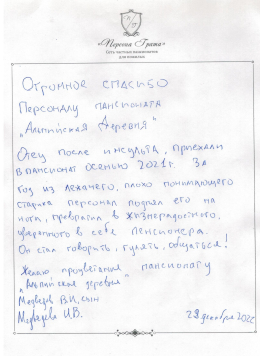 «Первая Грата»
Сеть частных пансионатов
для пожилых
Огромное спасибо
Персоналу пансионата
„Альпийская деревня"
Отец после инсульта, приехали
в пансионат осенью 2021 г. За
год из лежачего, плохо понимающего
старика персонал поднял его на
ноги, превратил в жизнерадостного,
уверенного в себе пенсионера.
Он стал говорить, гулять, общаться!
Желаю процветания пансионату
„Альпийская деревня"
Медведев В.И., сын
Медведева И.В.
28 декабря 2022